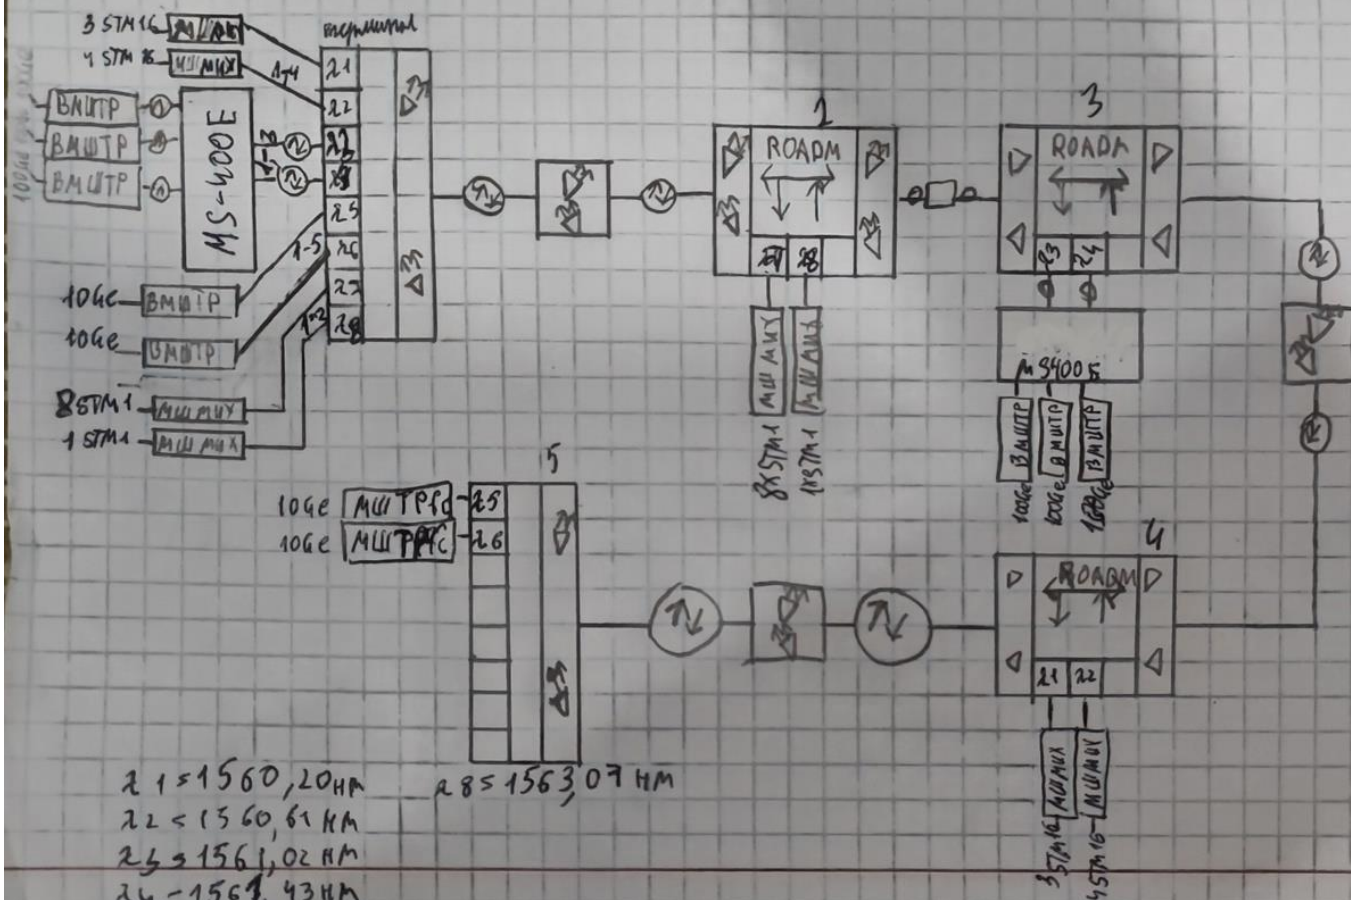 3 STM16
МШМИХ
4 STM 16
МШМИХ
1-4
терминал
λ1
λ2
λ3
λ4
λ5
λ6
λ7
λ8
ВМШТР
ВМШТР
ВМШТР
MS-400E
1-3
1-5
1-2
10Ge
ВМШТР
10Ge
ВМШТР
8STM1
МШМИХ
1 STM1
МШМИХ
ROADM
λ7
λ8
МШМИХ
МШМИХ
8xSTM1
1xSTM1
3
ROADM
λ3
λ4
MS400E
ВМШТР
ВМШТР
ВМШТР
100Ge
100Ge
100Ge
5
10Ge
МШТРПС
λ5
10Ge
λ6
4
ROADM
λ1
λ2
МШМИХ
МШМИХ
3STM16
4STM16
λ1=1560,20нм
λ8=1563,07 нм
λ2=1560,61 нм
λ3=1561,02 нм
λ4-1561,43нм